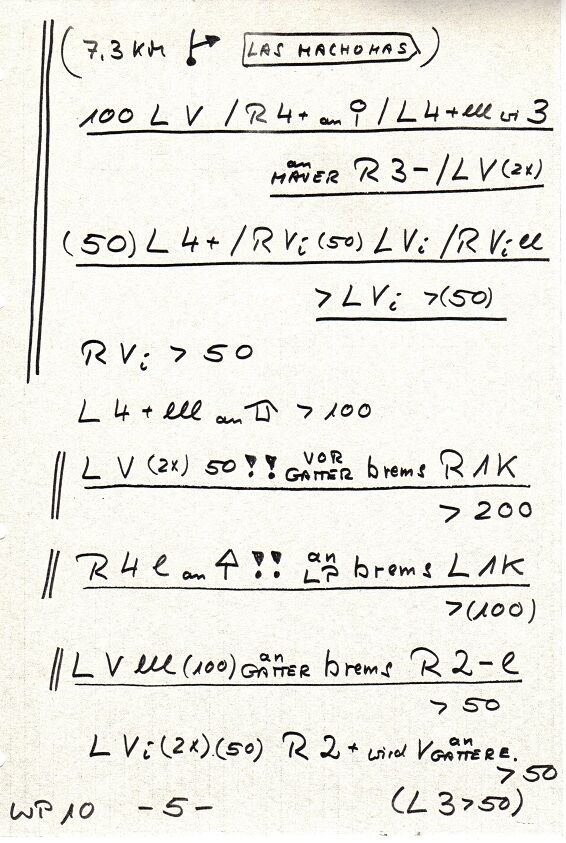 (7,3 KM LAS MACHOMAS)
100 L V / R 4+ an / L 4+ lll wi 3
an MAUER R 3- / L V (2x)
(50) L 4+ / R Vi (50) L Vi / R Vi ll
> L Vi > (50)
R Vi > 50
L 4 + lll an > 100
L V (2x) 50 !! VOR GATTER brems R 1K
> 200
R 4 l an !! an LP brems L 1K
> (100)
L V lll (100) an GATTER brems R 2 - l
> 50
L Vi (2x) (50) R 2 + wird V an GATTER E.
> 50
WP 10 - 5 - (L 3 > 50)